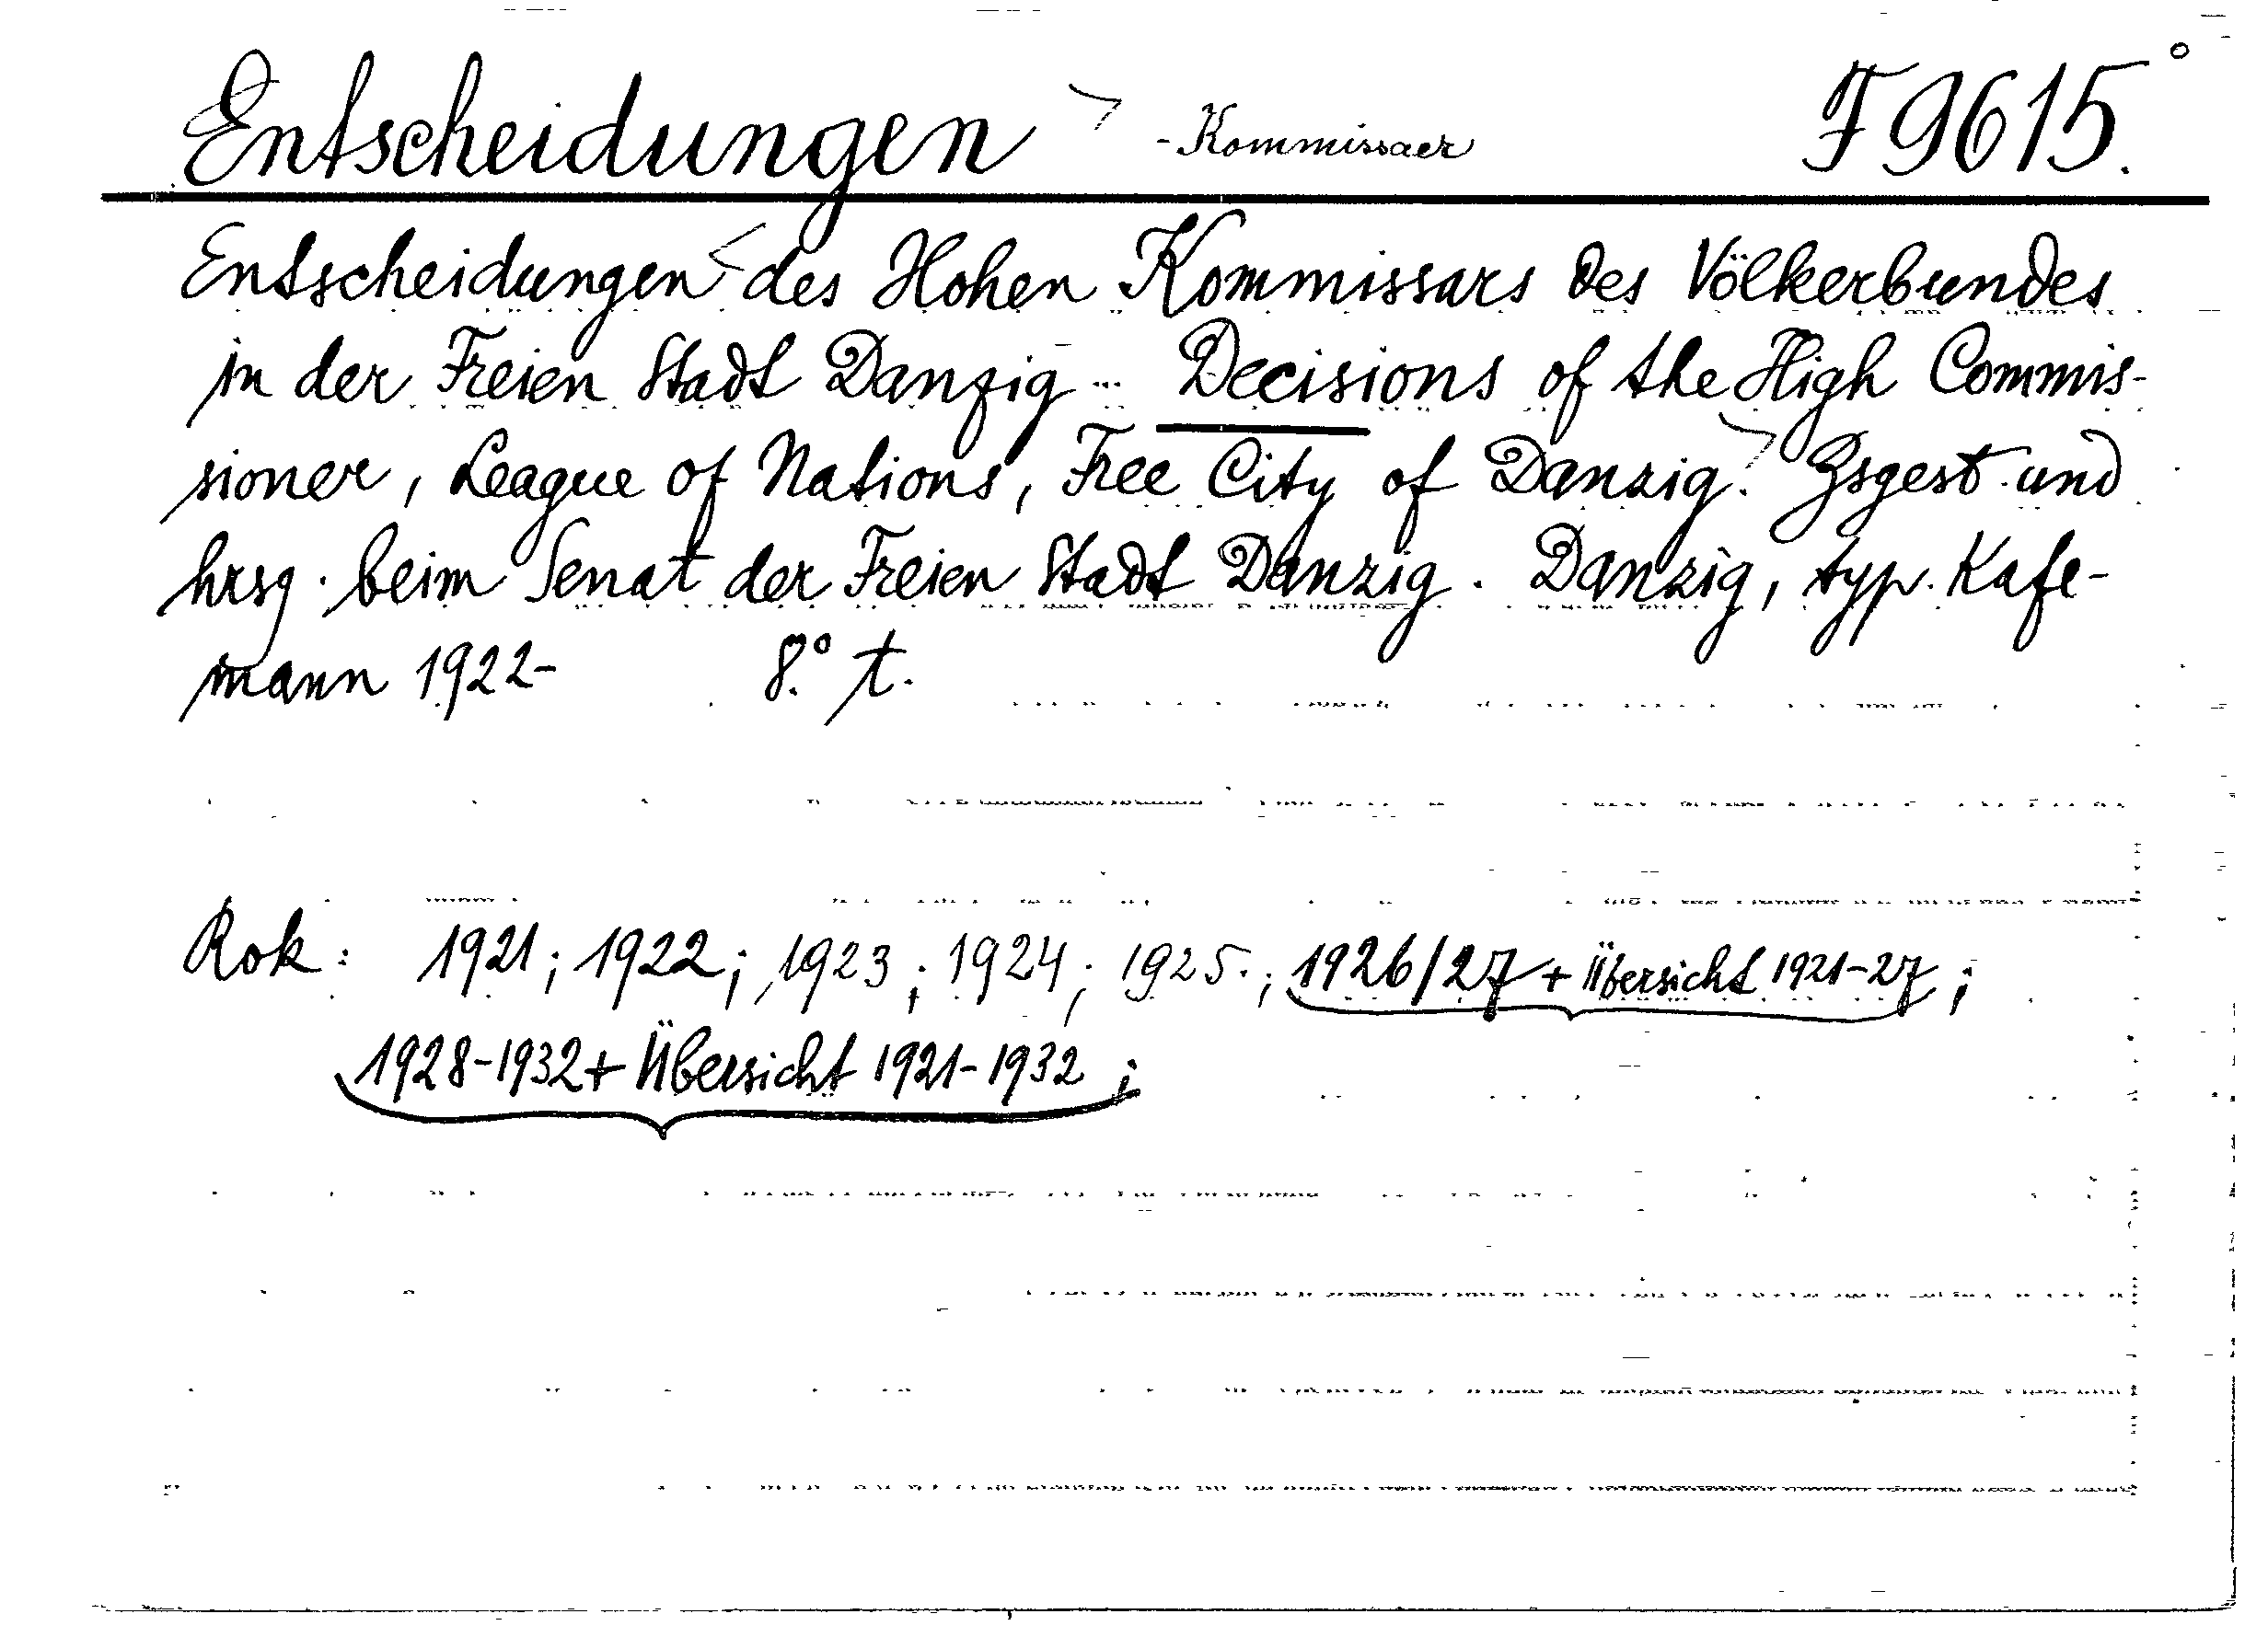 Entscheidungen -Kommissaer F 9615.°
Entscheidungen des Hohen Kommissars des Völkerbundes
in der Freien Stadt Danzig ... Decisions of the High Commis-
sioner, League of Nations, Free City of Danzig. Zsgest. und
hrsg. beim Senat der Freien Stadt Danzig. Danzig, typ. Kafe-
mann 1922- 8.° t.
Rok: 1921; 1922; 1923; 1924; 1925.; 1926/27 + Übersicht 1921-27;
1928-1932 + Übersicht 1921-1932;